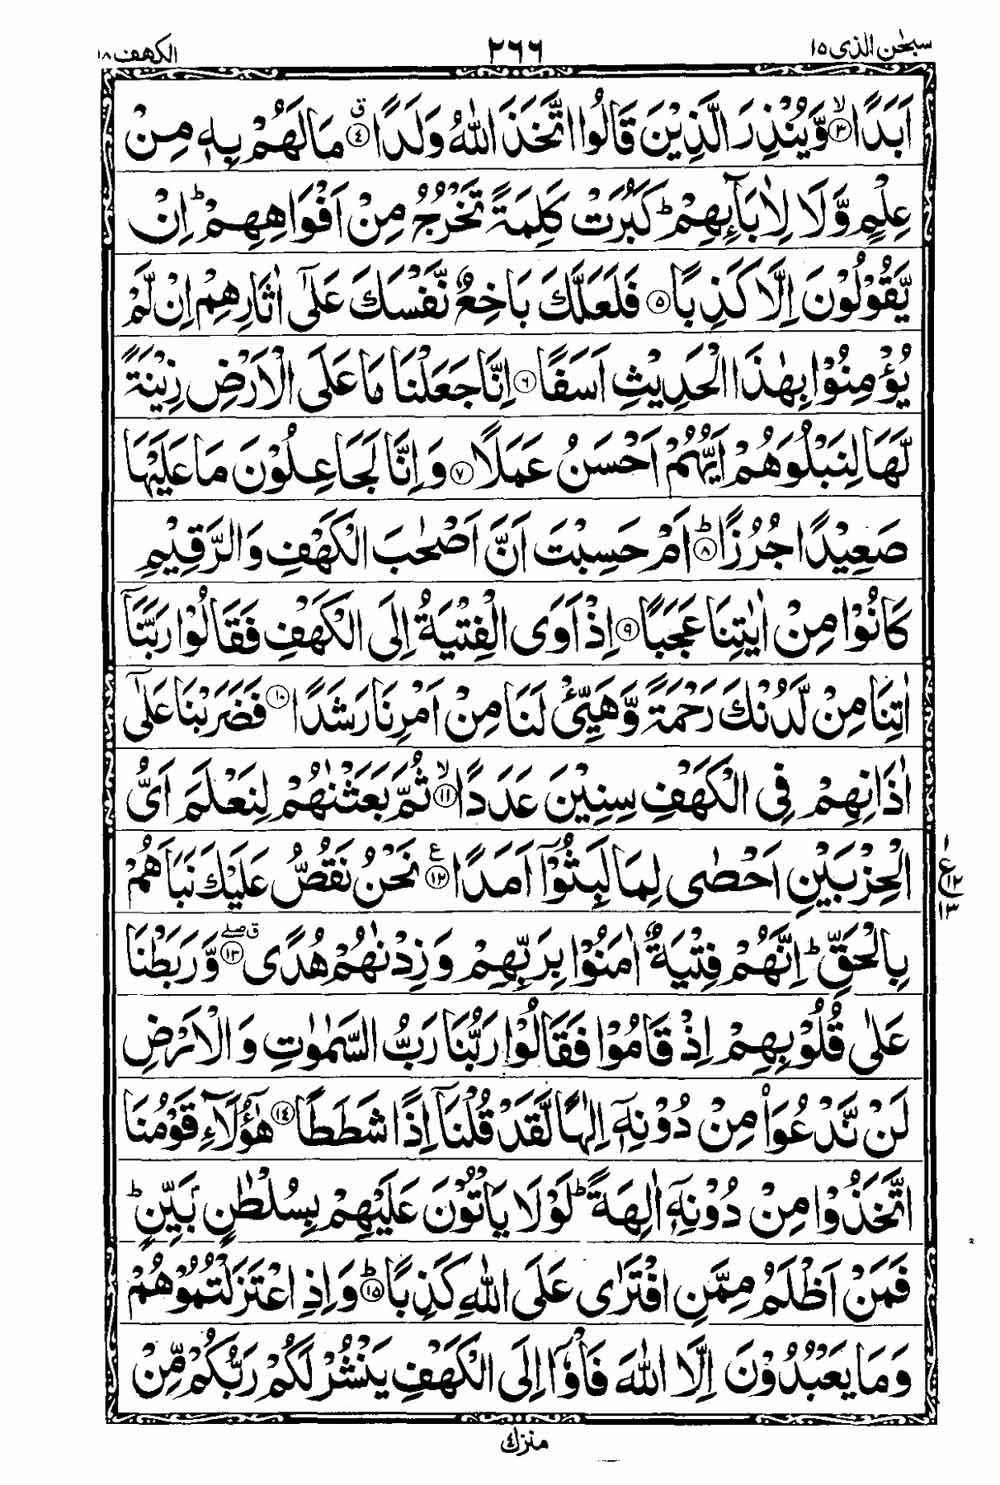 سبحٰن الذی ١٥
٢٦٦
الكهف ١٨
اَبَدًا ۙ﴿٣﴾ وَّيُنْذِرَ الَّذِيْنَ قَالُوا اتَّخَذَ اللّٰهُ وَلَدًا ۗ﴿٤﴾ مَا لَهُمْ بِهٖ مِنْ
عِلْمٍ وَّلَا لِاٰبَآئِهِمْ ؕ كَبُرَتْ كَلِمَةً تَخْرُجُ مِنْ اَفْوَاهِهِمْ ؕ اِنْ
يَّقُوْلُوْنَ اِلَّا كَذِبًا ﴿٥﴾ فَلَعَلَّكَ بَاخِعٌ نَّفْسَكَ عَلٰٓى اٰثَارِهِمْ اِنْ لَّمْ
يُؤْمِنُوْا بِهٰذَا الْحَدِيْثِ اَسَفًا ﴿٦﴾ اِنَّا جَعَلْنَا مَا عَلَى الْاَرْضِ زِيْنَةً
لَّهَا لِنَبْلُوَهُمْ اَيُّهُمْ اَحْسَنُ عَمَلًا ﴿٧﴾ وَاِنَّا لَجَاعِلُوْنَ مَا عَلَيْهَا
صَعِيْدًا جُرُزًا ؕ﴿٨﴾ اَمْ حَسِبْتَ اَنَّ اَصْحٰبَ الْكَهْفِ وَالرَّقِيْمِ
كَانُوْا مِنْ اٰيٰتِنَا عَجَبًا ﴿٩﴾ اِذْ اَوَى الْفِتْيَةُ اِلَى الْكَهْفِ فَقَالُوْا رَبَّنَآ
اٰتِنَا مِنْ لَّدُنْكَ رَحْمَةً وَّهَيِّئْ لَنَا مِنْ اَمْرِنَا رَشَدًا ﴿١٠﴾ فَضَرَبْنَا عَلٰٓى
اٰذَانِهِمْ فِى الْكَهْفِ سِنِيْنَ عَدَدًا ۙ﴿١١﴾ ثُمَّ بَعَثْنٰهُمْ لِنَعْلَمَ اَىُّ
الْحِزْبَيْنِ اَحْصٰى لِمَا لَبِثُوْٓا اَمَدًا ﴿١٢﴾ ع نَحْنُ نَقُصُّ عَلَيْكَ نَبَاَهُمْ
١ ع ١٢ ١٣
بِالْحَقِّ ؕ اِنَّهُمْ فِتْيَةٌ اٰمَنُوْا بِرَبِّهِمْ وَزِدْنٰهُمْ هُدًى ۗۖ﴿١٣﴾ وَّرَبَطْنَا
عَلٰى قُلُوْبِهِمْ اِذْ قَامُوْا فَقَالُوْا رَبُّنَا رَبُّ السَّمٰوٰتِ وَالْاَرْضِ
لَنْ نَّدْعُوَا۟ مِنْ دُوْنِهٖٓ اِلٰهًا لَّقَدْ قُلْنَآ اِذًا شَطَطًا ﴿١٤﴾ هٰٓؤُلَآءِ قَوْمُنَا
اتَّخَذُوْا مِنْ دُوْنِهٖٓ اٰلِهَةً ؕ لَوْلَا يَاْتُوْنَ عَلَيْهِمْ بِسُلْطٰنٍۭ بَيِّنٍ ؕ
فَمَنْ اَظْلَمُ مِمَّنِ افْتَرٰى عَلَى اللّٰهِ كَذِبًا ؕ﴿١٥﴾ وَاِذِ اعْتَزَلْتُمُوْهُمْ
وَمَا يَعْبُدُوْنَ اِلَّا اللّٰهَ فَاْوٗٓا اِلَى الْكَهْفِ يَنْشُرْ لَكُمْ رَبُّكُمْ مِّنْ
منزل ٤